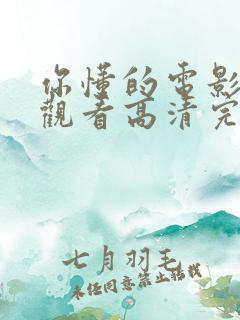 你懂的电影
觀看高清完
七月羽毛
未经同意禁止转载